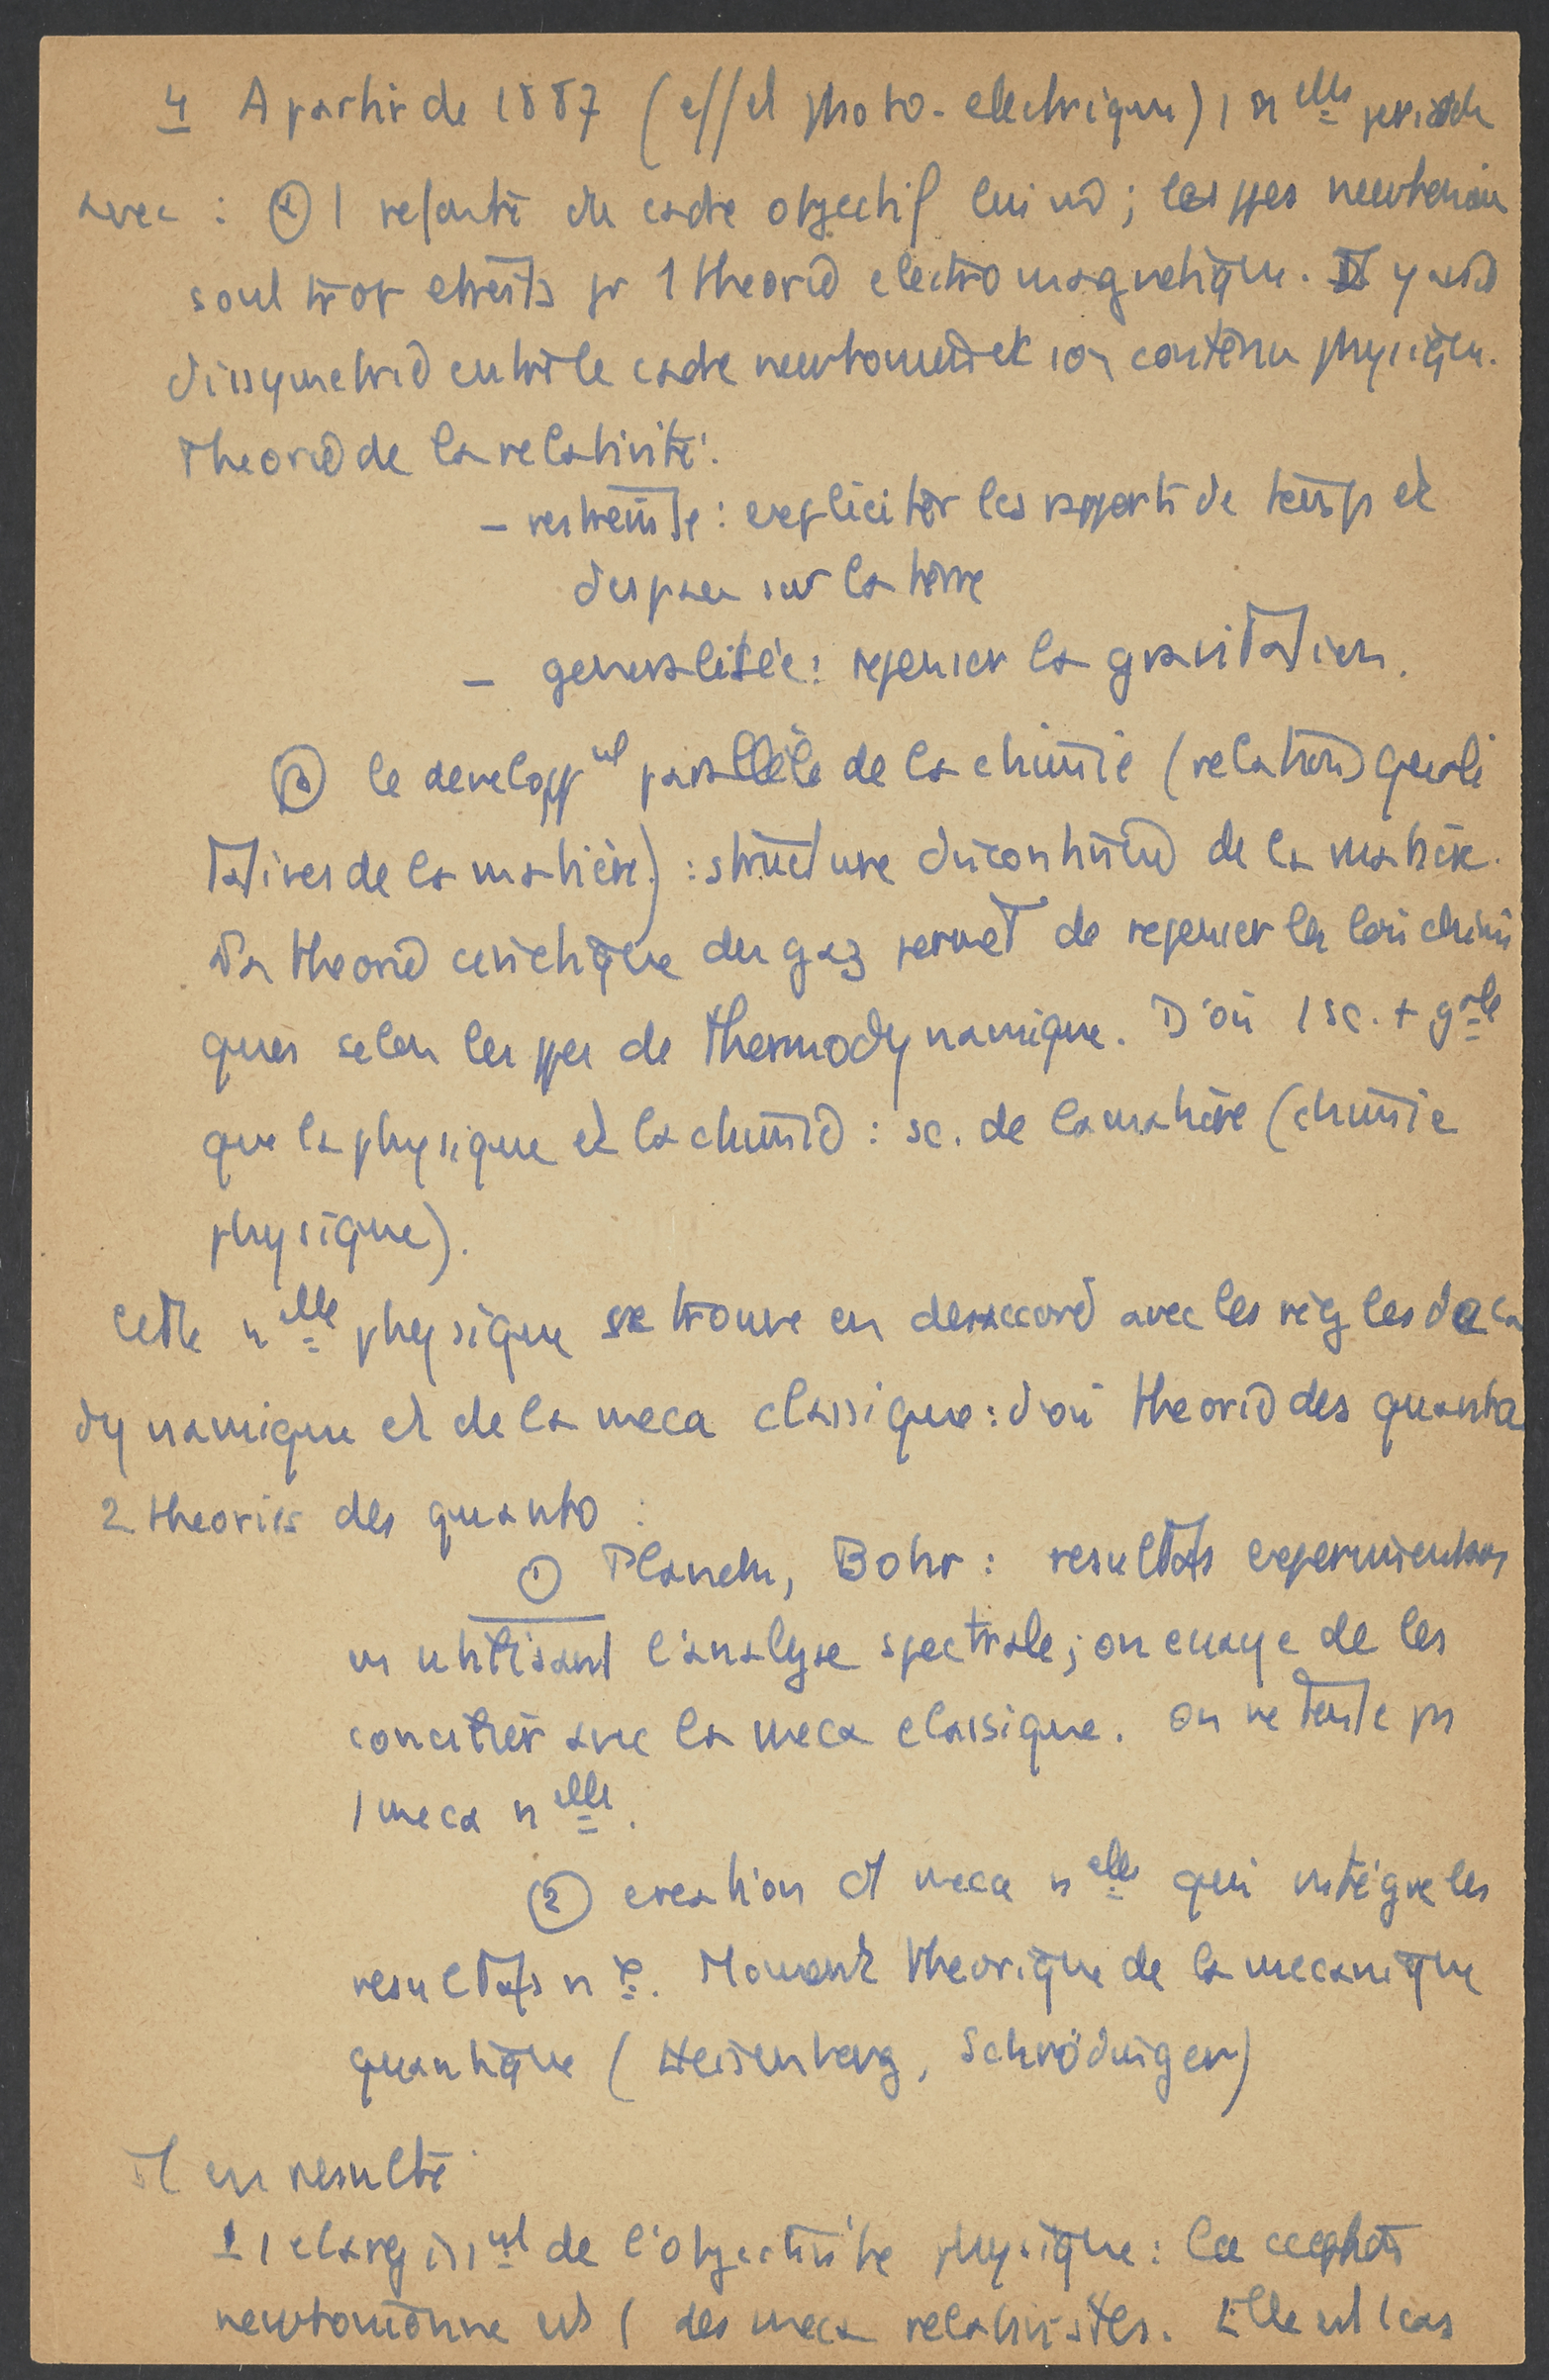 4 A partir de 1887 (effet photo-electrique) 1 nelle periode
avec : (α) 1 refonte du cadre objectif lui md ; les ppes newtoniens
sont trop etroits pr 1 theorie electromagnetique. Il y a
dissymetrie entre le cadre newtonien et son contenu physique.
Theorie de la relativité :
– restreinte : expliciter les rapports de temps et
d'espace sur la terre
– generalisée : repenser la gravitation.
(β) le developpt parallèle de la chimie (relations quali
tatives de la matière) : structure discontinue de la matière.
La theorie cinetique des gaz permet de repenser les lois chimi
ques selon les ppes de thermodynamique. D'où 1 sc. + gale
que la physique et la chimie : sc. de la matière (chimie
physique).
Cette nelle physique se trouve en desaccord avec les règles de la
dynamique et de la meca classique : d'où theorie des quanta
2 theories des quanta :
① Planck, Bohr : resultats experimentaux
en utilisant l'analyse spectrale ; on essaye de les
concilier avec la meca classique. On ne tente pas
1 meca nelle.
② creation d'1 meca nelle qui intégre les
resultats nx. Moment theorique de la mecanique
quantique (Heisenberg, Schrödinger)
Il en resulte :
1 1 elargisst de l'objectivité physique : la
newtonienne est 1 des meca relativistes. Elle est 1 cas